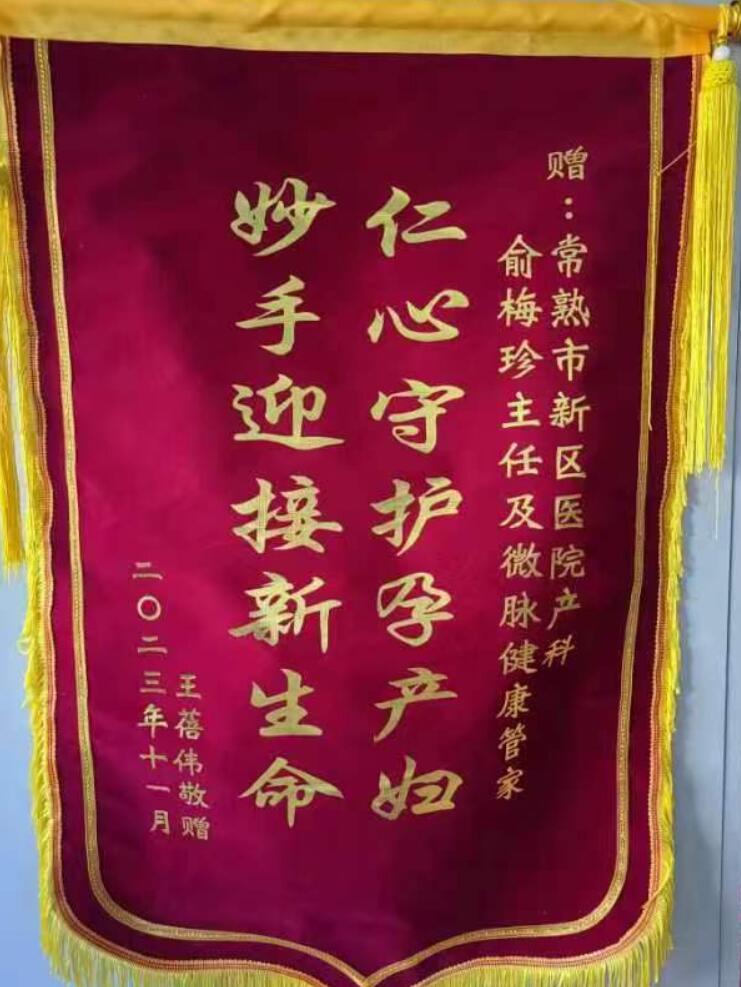 赠：常熟市新区医院产科
俞梅珍主任及微脉健康管家
仁心守护孕产妇
妙手迎接新生命
王蓓伟敬赠
二〇二三年十一月